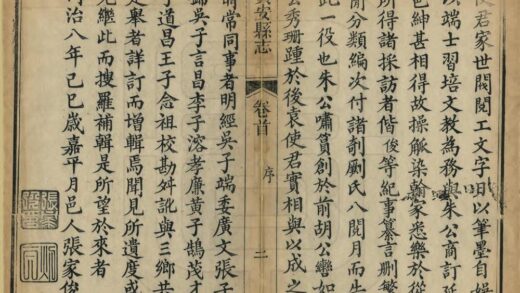 使君家世閥閱工文字日以筆墨自娛
以端士習培文教為務與朱公商訂延
邑紳甚相得故操觚染翰家悉樂於從
所得諸採訪者偕俊等紀事纂言刪繁
前分類編次付諸剞劂氏八閱月而
此一役也朱公嘯篔創於前胡公巒如
秀珊踵於後袁使君實相與以成之
安縣志
卷首
序
二
前當同事者明經吳子端委廣文張子
端吳子言昌李子溶孝廉黃子鵠茂才
子道昌王子念祖校勘舛訛與三鄉共
定是舉者詳訂而增輯焉聞見所遺度或
克繼此而搜羅補輯是所望於來者
同治八年己巳歲嘉平月邑人張家俊